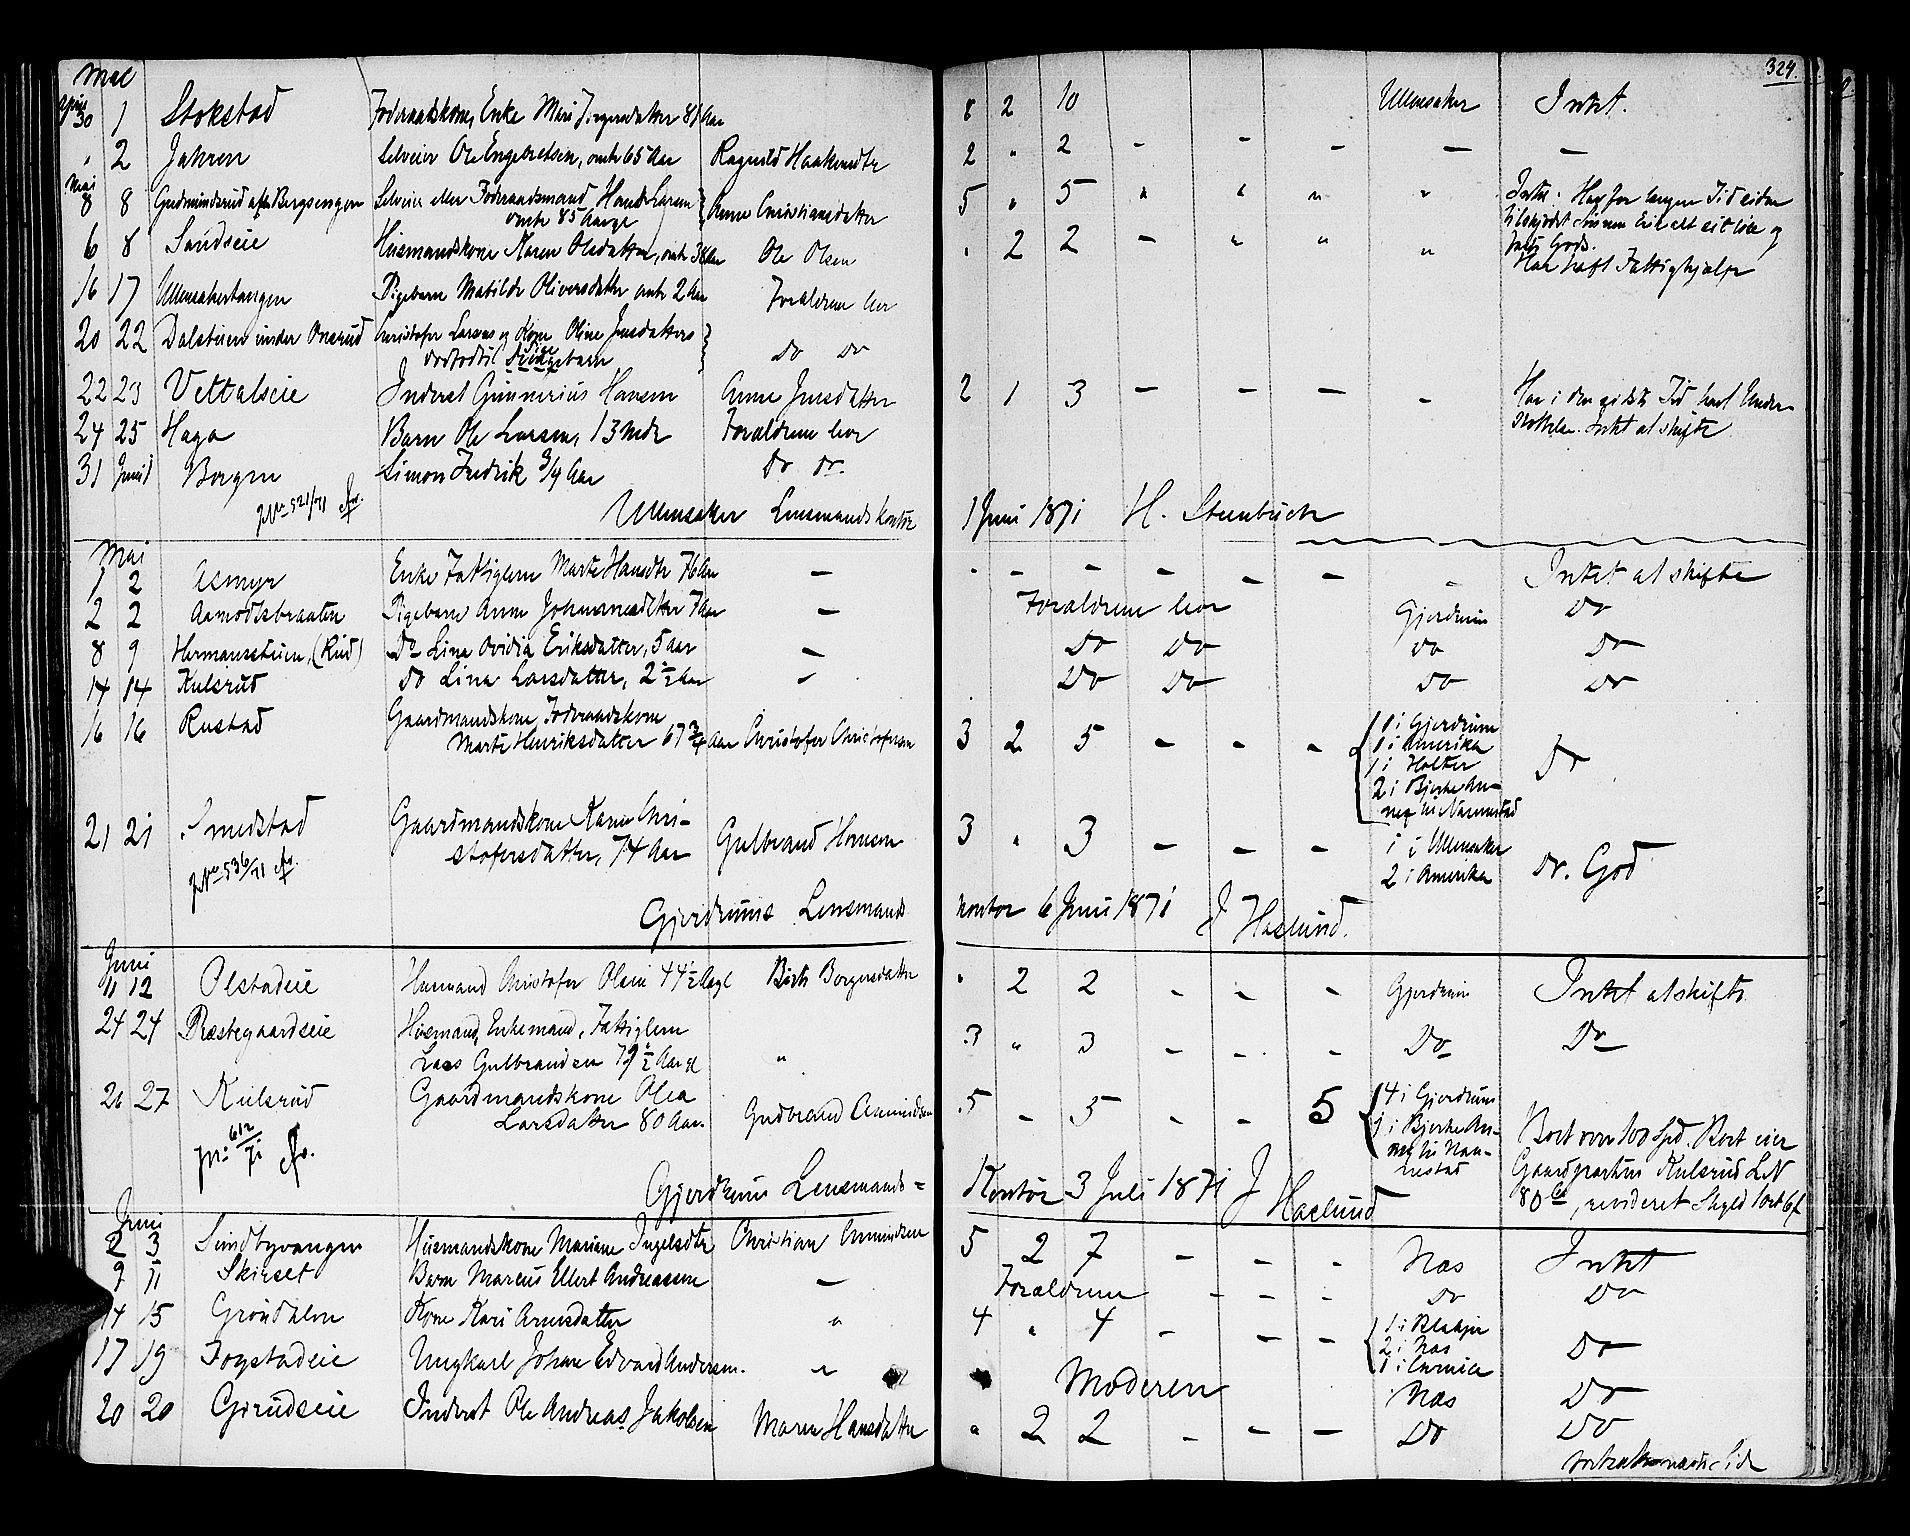 324.
Mai
April 30 1 Stokstad Foderaadskone, Enke Mari Jørgensdatter 87 Aar 8 2 10 Ullensaker Intet.
" 2 Jahren Selveier Ole Engebretsen, omtr 65 Aar Ragnild Haakensdtr 2 " 2 - - - - -
Mai 8 8 Gudmundsrud Bergsengen Selveier eller Foderaadsmand Hans Larsen omtr 85 Aar gl Anne Christiansdatter 5 " 5 " " " " Intet. Har for langen Tid siden
tilskjødet Sønnen Eie alt sit løse og
faste Gods.
6 8 Sandseie Huusmandskone Karen Olsdatter, omtr 38 Aar Ole Olsen " 2 2 - " " " Har haft Fattighjælp
16 17 Ullensakertangen Pigebarn Matilde Oliversdatter omtr 2 Aar Forældrene lever
20 22 Dalstuen under Onsrud Christofer Larsens og Kone Oline Jensdatters
dødfødt Pigebarn Do Do
22 23 Vettalseie Inderst Gunnerius Hansen Anne Jensdatter 2 1 3 - - - - Har i den sidste Tid havt Under-
støttelse. Intet at skifte
24 25 Haga Barn Ole Larsen, 13 Mdr Forældrene lever
31 Juni 1 Borgen Simon Fredrik 3/4 Aar Do Do.
J.No 521/71
Ullensaker Lensmandskontor 1 Juni 1871 H. Steenbuch
Mai
1 2 Asmyr Enke Fattiglem Marte Hansdtr 76 Aar - - - - - - - - Intet at skifte
2 2 Aamodtsbraaten Pigebarn Anne Johannesdatter 7 Aar - Forældrene lever Gjerdrum Do
8 9 Hermanstuen, (Rud) Do Lina Ovidia Eriksdatter, 5 aar - Do Do Do Do
14 14 Kulsrud Do Lina Larsdatter, 2 1/2 Aar - Do Do Do Do
16 16 Rustad Gaardmandskone Foderaadskone
Marte Henriksdatter 67 3/4 Aar Christofer Christofersen 3 2 5 - - - 1 i Gjerdrum
1 i Amerika
1 i Holter
2 i Bjerke An-
nex til Nannestad Do
21 21 Smedstad Gaardmandskone Karen Chri-
stofersdatter, 74 Aar Gulbrand Hansen 3 " 3 - - - 1 i Ullensaker
2 i Amerika Do. God
J.No 536/71
Gjerdrums Lensmands kontor 6 Juni 1871 J Haslund.
Juni
11 12 Olstadeie Huusmand Christofer Olsen 44 1/2 Aar gl Berte Borgersdatter " 2 2 - - - Gjerdrum Intet at skifte
24 24 Præstegaardseie Huusmand, Enkemand, Fattiglem
Lars Gulbrandsen 79 1/2 Aar gl " 3 " 3 - - - Do Do
26 27 Kulsrud Gaardmandskone Olea
Larsdatter 80 Aar Gudbrand Amundsen 5 - 5 - - 5 4 i Gjerdrum
1 i Bjerke An-
nex til Nan-
nestad Boet over 100 Spd. Boet eier
Gaardparten Kulsrud L.N
80, revideret Skyld
J.No 612/71
Gjerdrum Lensmands- Kontor 3 Juli 1871 J Haslund
Juni
2 3 Sundbyvangen Huusmandskone Mariane Ingelsdtr Christian Amundsen 5 2 7 - - - Næs Intet
9 11 Skirset Barn Marcus Ellert Andreassen - Forældrene - - - Do Do
14 15 Grøndalen Kone Kari Arnesdatter " 4 " 4 - - - 1 i Blakjer
2 i Næs
1 i Amerika Do
17 19 Fogstadeie Ungkarl Johan Edvard Andersen. " Moderen Næs Do
20 20 Gjerudseie Inderst Ole Andreas Jakobsen Maren Hansdatter " 2 2 - - - Do Do
fortsættes næste Side